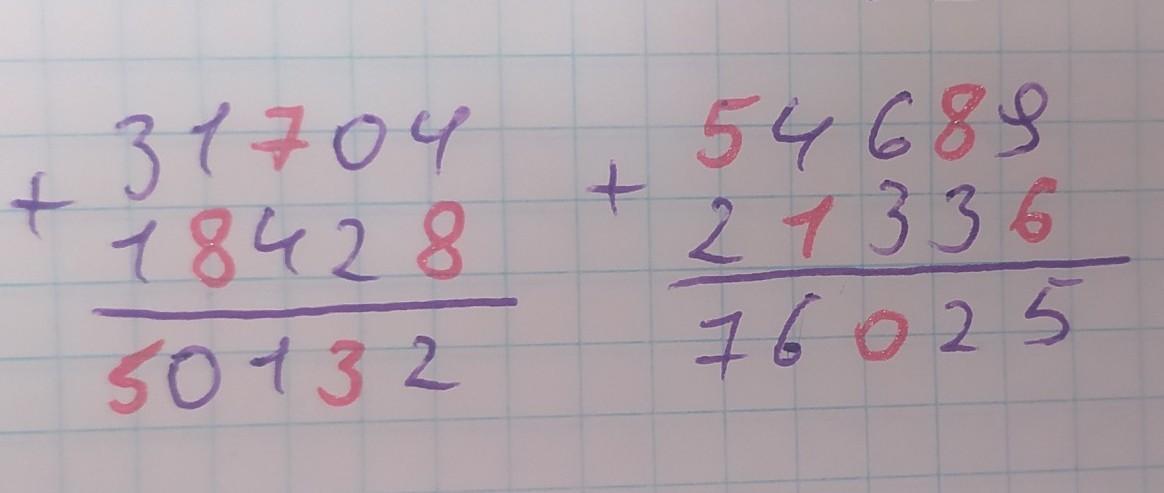 31704 + 18428 = 50132
54689 + 21336 = 76025